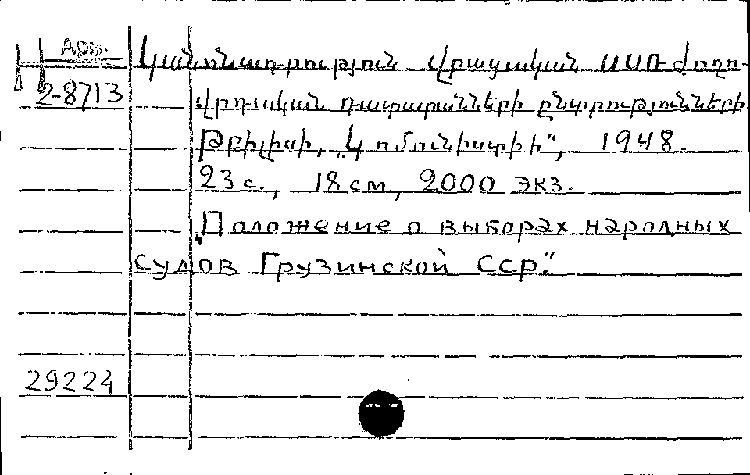 Арм.
2-8713
Կանոնադրություն վրացական ՍՍՌ ժողո-
վրդական դատարանների ընտրությունների
Թբիլիսի, „Կոմունիստիի", 1948.
23 с., 18 см, 2000 экз.
„Положение о выборах народных
судов Грузинской ССР."
29224